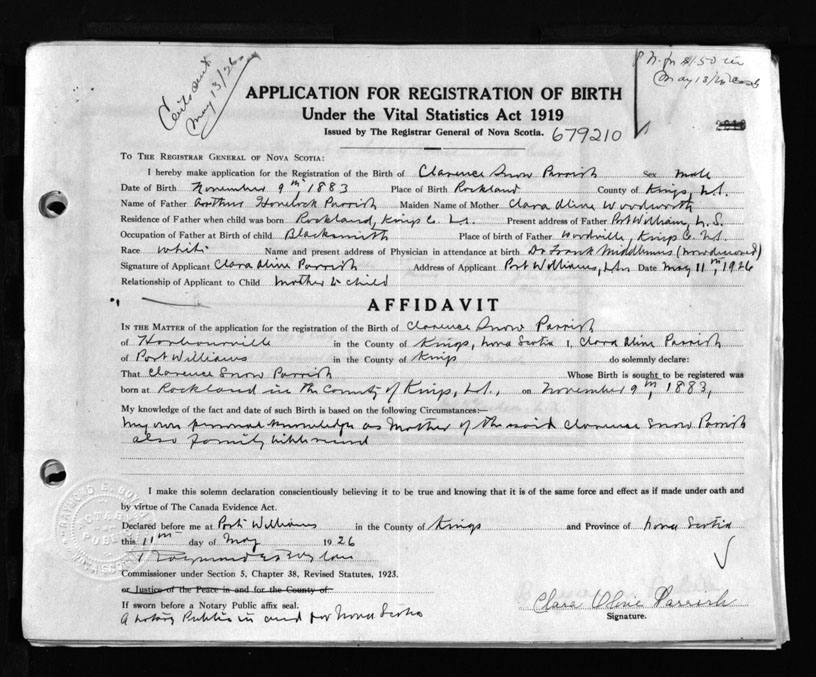 Cert. sent
May 13/26
May 13/26
APPLICATION FOR REGISTRATION OF BIRTH
Under the Vital Statistics Act 1919
Issued by The Registrar General of Nova Scotia. 679210
TO THE REGISTRAR GENERAL OF NOVA SCOTIA:
I hereby make application for the Registration of the Birth of Clarence Snow Parrish Sex male
Date of Birth November 9th, 1883 Place of Birth Rockland County of Kings, N.S.
Name of Father Arthur Parrish Maiden Name of Mother Clara Aline Woodworth
Residence of Father when child was born Rockland, Kings C. N.S. Present address of Father Port William, N.S.
Occupation of Father at Birth of child Blacksmith Place of birth of Father Kings C. N.S.
Race white Name and present address of Physician in attendance at birth Dr Frank Middlemas (now deceased)
Signature of Applicant Clara Aline Parrish Address of Applicant Port Williams, N.S. Date May 11th, 1926
Relationship of Applicant to Child mother to child
AFFIDAVIT
IN THE MATTER of the application for the registration of the Birth of Clarence Snow Parrish
of Harbourville in the County of Kings, Nova Scotia I, Clara Aline Parrish
of Port Williams in the County of Kings do solemnly declare:
That Clarence Snow Parrish Whose Birth is sought to be registered was
born at Rockland in the County of Kings, N.S., on November 9th, 1883,
My knowledge of the fact and date of such Birth is based on the following Circumstances:—
My own personal knowledge as Mother of the said Clarence Snow Parrish
also family
I make this solemn declaration conscientiously believing it to be true and knowing that it is of the same force and effect as if made under oath and
by virtue of The Canada Evidence Act.
Declared before me at Port Williams in the County of Kings and Province of Nova Scotia
this 11th day of May 1926
Raymond E.
Commissioner under Section 5, Chapter 38, Revised Statutes, 1923.
or Justice of the Peace in and for the County of
If sworn before a Notary Public affix seal.
A Notary Public in and for Nova Scotia
Clara Aline Parrish
Signature.